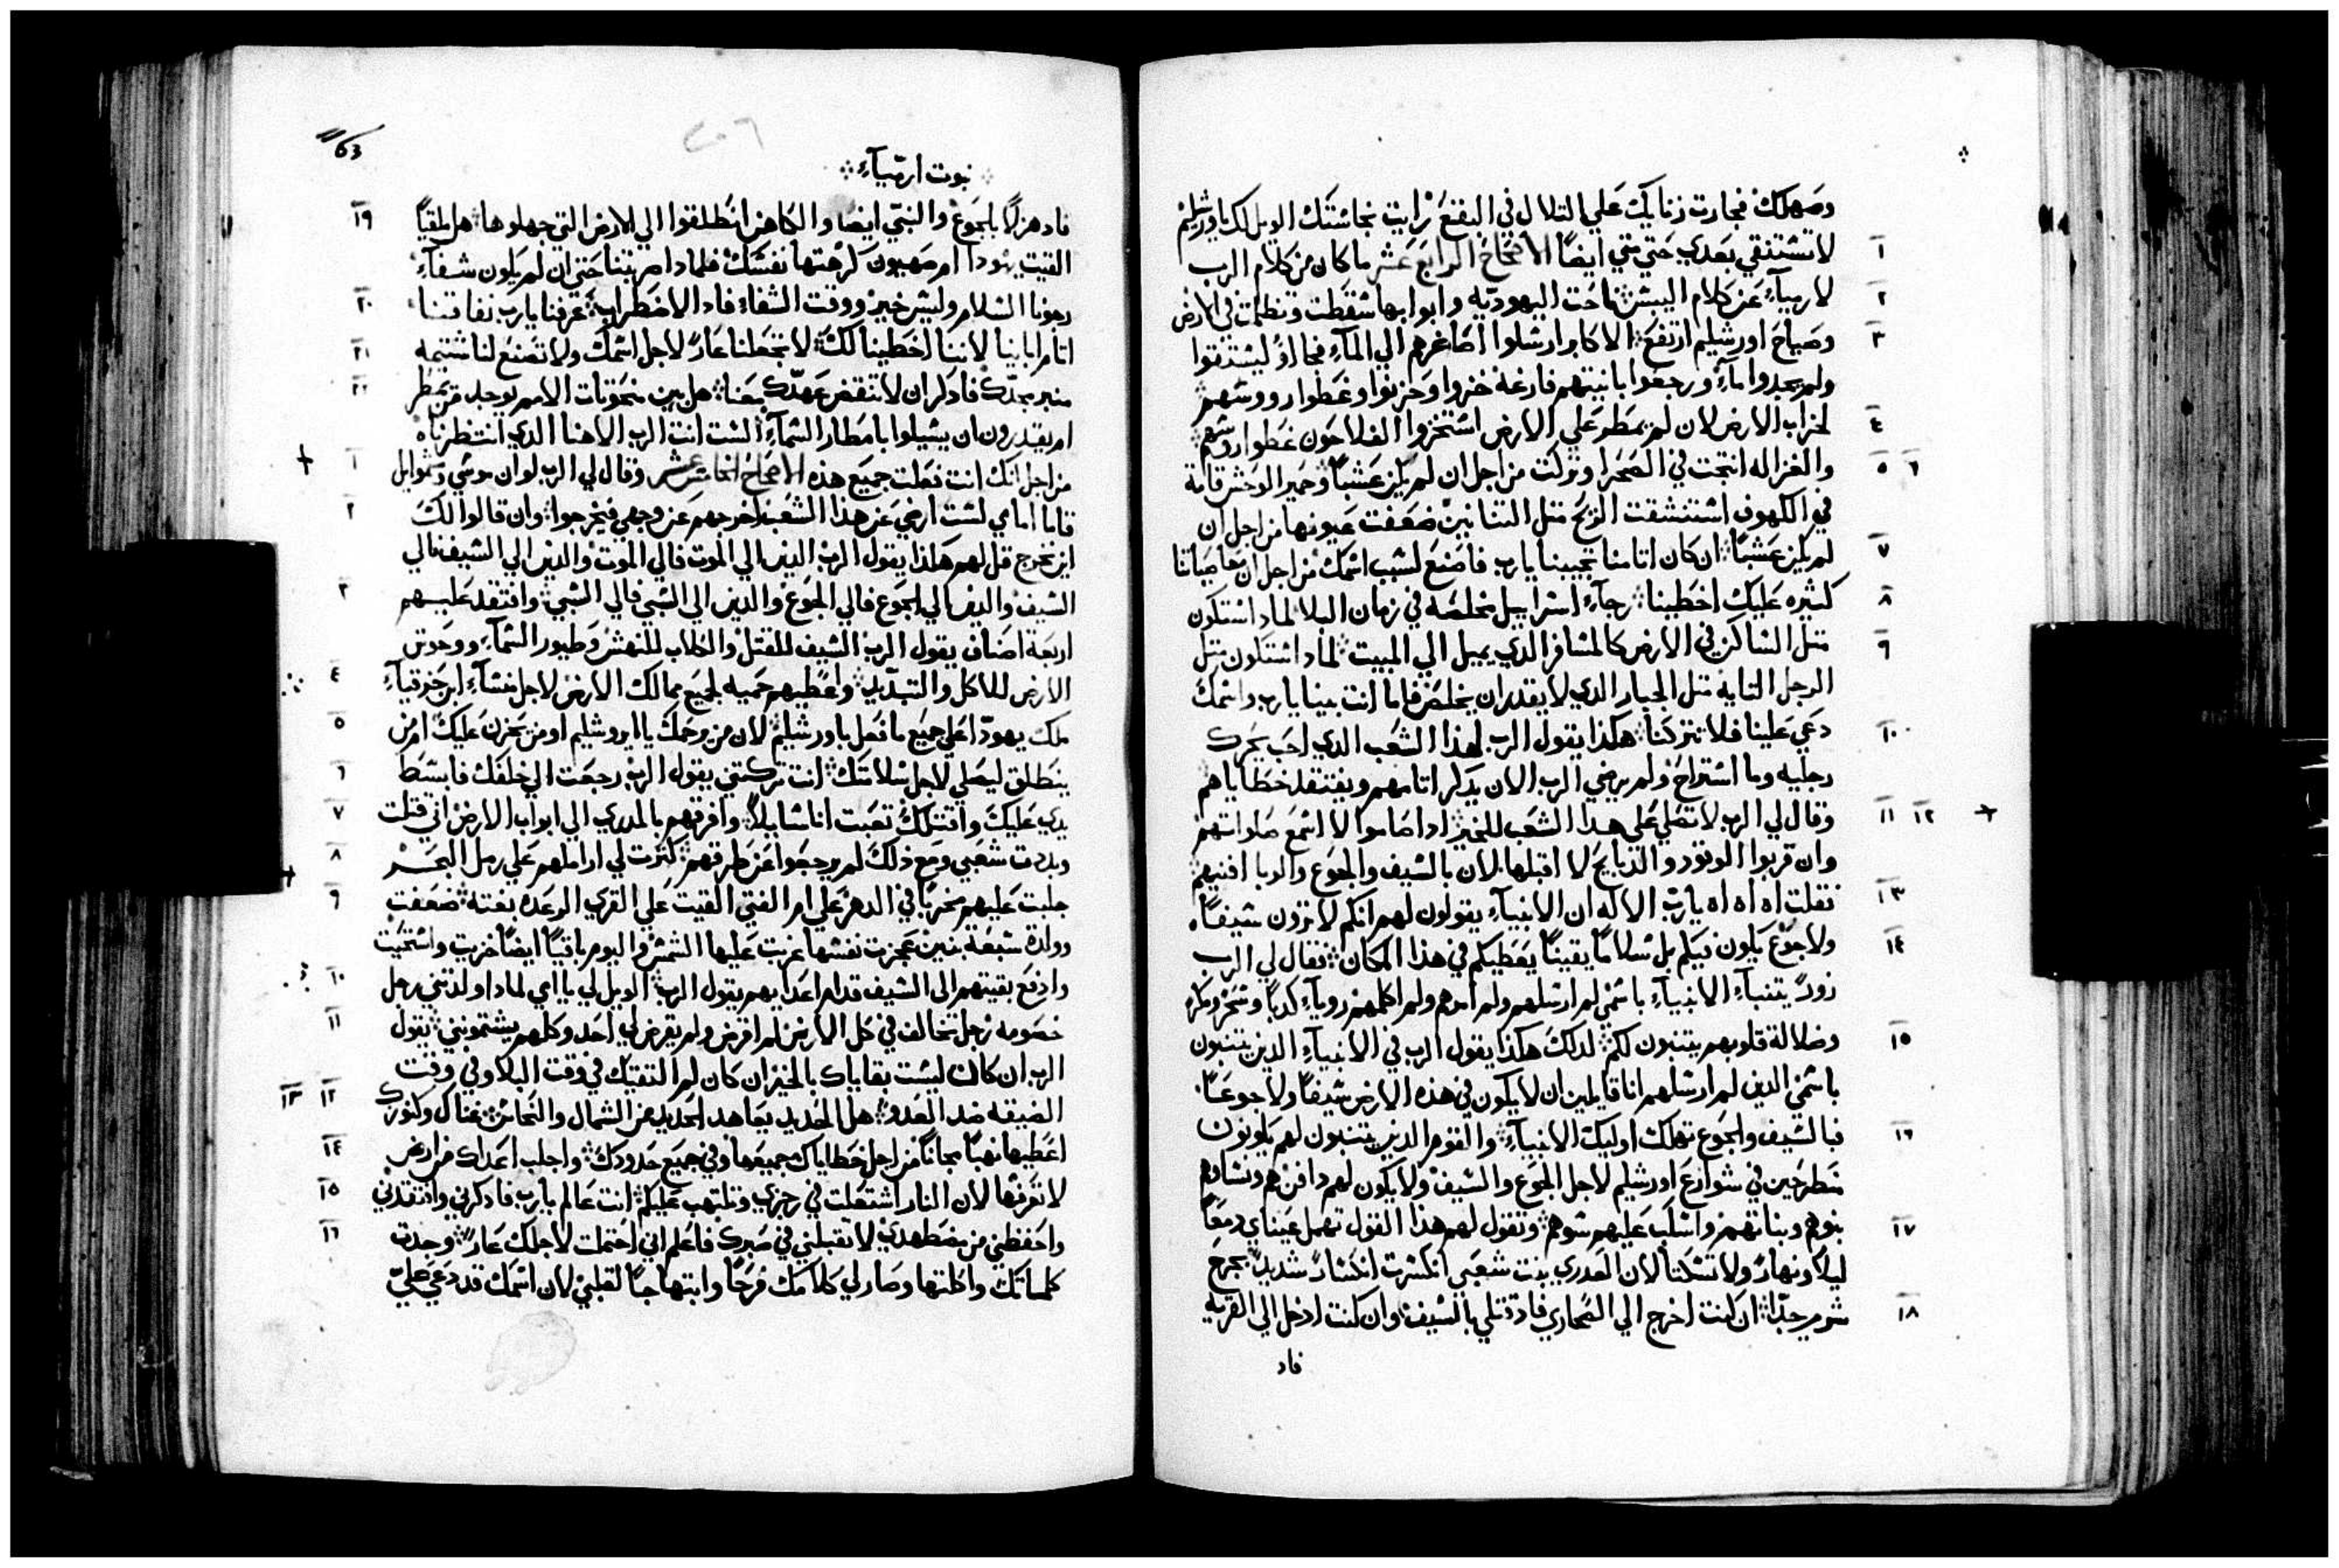 وصهلك فجارت زنايك علي التلال في البقع رايت نجاستك الويل لك ياورشليم
١ لا تستنقي بعدي حتي متي ايضاً الاصحاح الرابع عشر ما كان من كلام الرب
٢ لارميآء عن كلام اليبس ناحت اليهوديه وابوابها سقطت وتظلمت في الارض
٣ وصياح اورشليم ارتفع الاكابر ارسلوا اصاغرهم الي المآء فجاوا ليستقوا
ولم يجدوا مآء ورجعوا بانيتهم فارغه خزوا وحزنوا وغطوا رووسهم
٤ لخراب الارض لان لم يمطر علي الارض استخزوا الفلاحون غطوا روسهم
٥ ٦ والغزاله انتجت في الصحرا وتركت من اجل ان لم يكن عشباً وحمير الوحش قامة
في الكهوف استنشقت الريح متل التنانين ضعفت عيونها من اجل ان
٧ لم يكن عشباً ان كان اتامنا تجيبنا يارب فاصنع لسبب اسمك من اجل ان معاصياتنا
٨ كثيره عليك اخطينا رجآء اسراييل مخلصه في زمان البلا لماد استكون
٩ متل الساكن في الارض كالمسافر الدي يميل الي المبيت لماد استكون متل
الرجل التايه متل الجبار الدي لا يقدر ان يخلص فاما انت بينا يارب واسمك
١٠ دعي علينا فلا تتركنا هكذا يقول الرب لهذا الشعب الدي احب يحرك
رجليه وما استراح ولم يرضي الرب الان يدكر اتامهم ويفتقد خطاياهم
١١ ١٢ وقال لي الرب لا تصلي علي هدا الشعب للخير ادا صاموا لا اسمع صلواتهم
وان قربوا الوقود والدبايح لا اقبلها لان بالسيف والجوع والوبا افنيهم
١٣ فقلت اه اه اه يارب الاله ان الانبيآء يقولون لهم انكم لا ترون سيفاً
١٤ ولا جوع يكون فيكم بل سلاماً يقيناً يعطيكم في هذا المكان فقال لي الرب
زوراً يتنبآء الانبيآء باسمي لم ارسلهم ولم امرهم ولم اكلمهم رويآء كدباً
١٥ وضلالة قلوبهم يتنبون لكم لدلك هكذا يقول الرب في الانبيآء الدين يتنبون
باسمي الدين لم ارسلهم انا قايلين ان لا يكون في هذه الارض سيفاً ولا جوعاً
١٦ فبالسيف والجوع تهلك اوليك الانبيآء والقوم الدين يتنبون لهم يكونون
منطرحين في شوارع اورشليم لاجل الجوع والسيف ولا يكون لهم دافن هم ونساهم
١٧ بنوهم وبناتهم واسكب عليهم سوهم وتقول لهم هذا القول تهمل عيناي دمعاً
ليلاً ونهاراً ولا تسكتا لان العدري بنت شعبي انكسرت انكساراً شديداً بجرح
١٨ شرير جداً ان كنت اخرج الي الصحاري فاد قتلي بالسيف وان كنت ادخل الي القريه
فاد
63
٢٠٦
نبوت ارميآء
١٩ فاد هزلا بالجوع والنبي ايضا والكاهن انطلقوا الي الارض التي جهلوها هل ملقياً
القيت يهودا ام صهيون كرهتها نفسك فلمادا ضربتنا حتي ان لم يكون شفآء
٢٠ رجونا السلام وليس خير ووقت الشفاء فاد الاضطراب عرفنا يارب نفاقنا
٢١ اتام ابايينا لاننا اخطينا لك لا تجعلنا عاراً لاجل اسمك ولا تصنع لنا شتيمه
٢٢ منبر مجدك فادكر ان لا تنقض عهدك معنا هل بين منحوتات الامم يوجد من يمطر
ام يقدرون ان يسيلوا بامطار السمآء الست انت الرب الاهنا الدي انتظرناه
١ من اجل انك انت فعلت جميع هذه الاصحاح الخامس عشر وقال لي الرب لوان موسي وسموايل
٢ قاما امامي لست ارضي عن هذا الشعب اخرجهم عن وجهي فيخرجوا وان قالوا لك
اين نخرج قل لهم هكذا يقول الرب الدين الي الموت فالي الموت والدين الي السيف فالي
٣ السيف والدين الي الجوع فالي الجوع والدين الي السبي فالي السبي وافتقد عليهم
اربعة اصناف يقول الرب السيف للقتل والكلاب للنهش وطيور السمآء ووحوش
٤ الارض للاكل والتبديد واعطيهم حميه لجميع ممالك الارض لاجل منسآء ابن حزقيآء
٥ ملك يهودا علي جميع ما فعل باورشليم لان من يرحمك يا اورشليم او من يحزن عليك ام من
٦ ينطلق ليصلي لاجل سلامتك انت تركتني يقول الرب رجعت الي خلفك فابسط
٧ يدي عليك واقتلك تعبت انا سايلاً وافرقهم بالمدري الي ابواب الارض اني قتلت
٨ وبددت شعبي ومع ذلك لم يرجعوا عن طرقهم كترت لي اراملهم علي رمل البحر
٩ جلبت عليهم مخرباً في الدهر علي ام الفتي القيت علي القري الرعده بغتة ضعفت
والدة سبعة بنين عجزت نفسها غربت عليها الشمس واليوم باقياً ايضاً خزيت واستحيت
١٠ وادفع بقيتهم الي السيف قدام اعدايهم يقول الرب الويل لي يا امي لمادا ولدتني رجل
١١ خصومه رجل مخالف في كل الارض لم اقرض ولم يقرض لي احد وكلهم يشتمونني يقول
الرب ان كان ليست بقاياك بالخير ان كان لم التقيتك في وقت البلا وفي وقت
١٢ ١٣ الضيقه ضد العدو هل الحديد يعاهد الحديد من الشمال والنحاس غناك وكنوزك
١٤ اعطيها نهباً مجاناً من اجل خطاياك جميعها وفي جميع حدودك واجلب اعداك من ارض
١٥ لا تعرفها لان النار اشتعلت في رجزي وتلتهب عليكم انت عالم يارب فادكرني وافتقدني
١٦ واحفظني من مضطهدي لا تقبلني في صبرك فاعلم اني احتملت لاجلك عاراً وجدت
كلماتك واكلتها وصار لي كلامك فرحاً وابتهاجاً لقلبي لان اسمك قد دعي علي